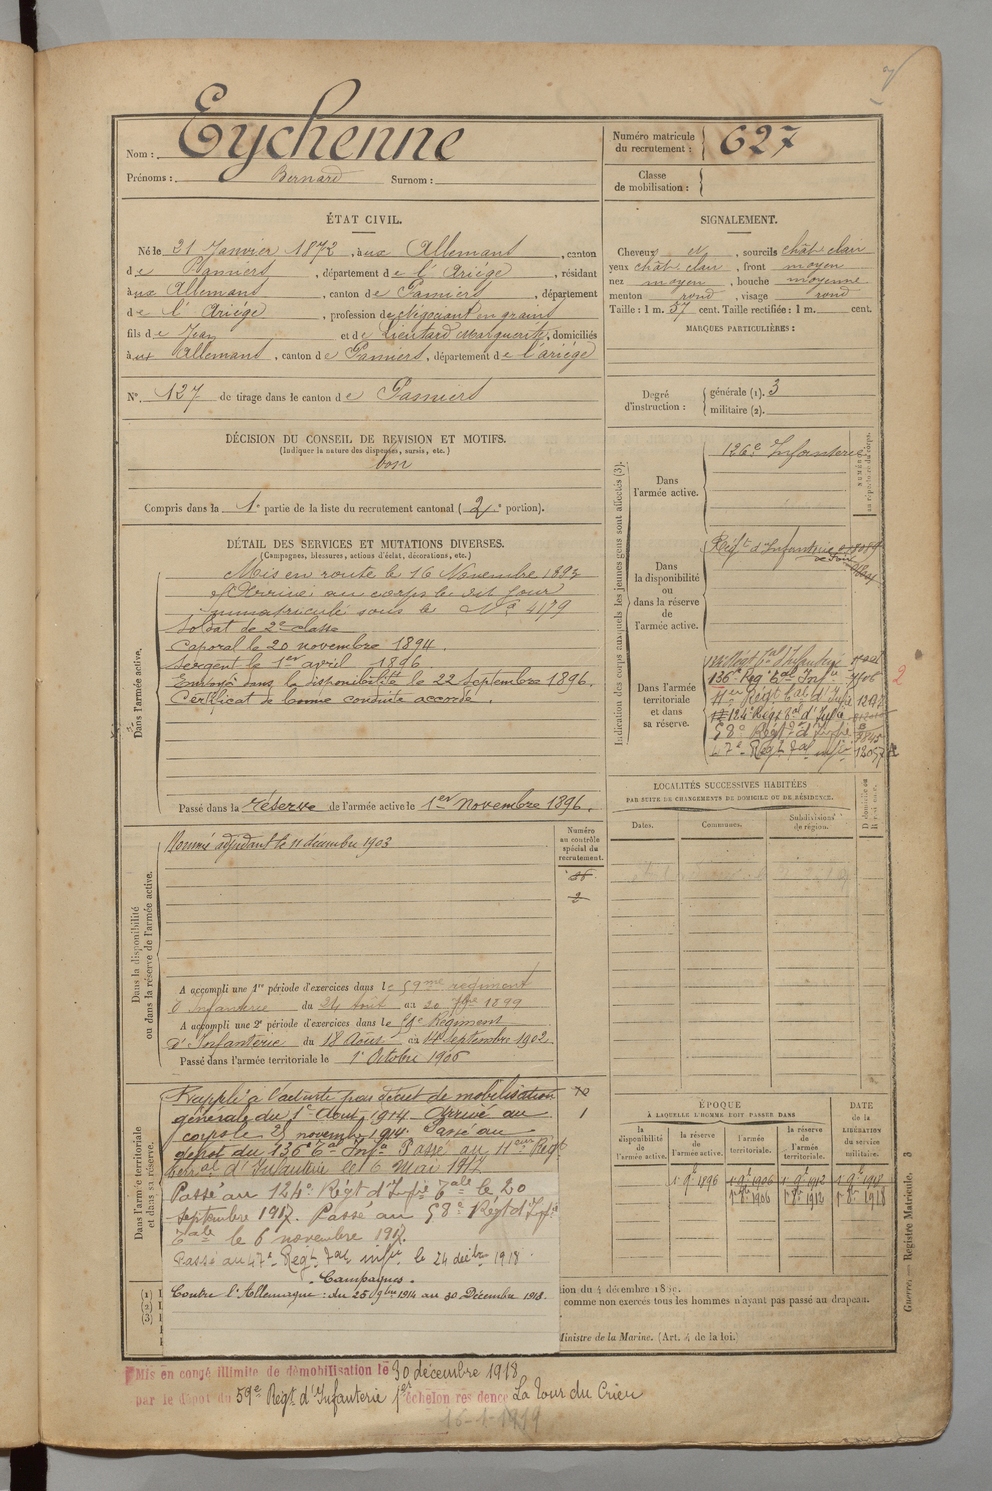 Nom : Eychenne
Prénoms : Bernard Surnom :
Numéro matricule du recrutement : 627
Classe de mobilisation :
ÉTAT CIVIL.
Né le 21 Janvier 1872, à ux Allemans, canton
de Pamiers, département de l'Ariége, résidant
à ux Allemans, canton de Pamiers, département
de l'Ariége, profession de Négociant en grains
fils de Jean et de Lieutard Marguerite, domiciliés
à ux Allemans, canton de Pamiers, département de l'ariége
N° 127 de tirage dans le canton de Pamiers
DÉCISION DU CONSEIL DE REVISION ET MOTIFS.
(Indiquer la nature des dispenses, sursis, etc.)
bon
Compris dans la 1e partie de la liste du recrutement cantonal (2e portion).
SIGNALEMENT.
Cheveux et, sourcils chât clair
yeux chât clair, front moyen
nez moyen, bouche moyenne
menton rond, visage rond
Taille : 1 m. 57 cent. Taille rectifiée : 1 m. cent.
MARQUES PARTICULIÈRES :
Degré d'instruction : générale (1). 3
militaire (2).
DÉTAIL DES SERVICES ET MUTATIONS DIVERSES.
(Campagnes, blessures, actions d'éclat, décorations, etc.)
Dans l'armée active.
Mis en route le 16 Novembre 1893
Arrivé au corps le dit jour
immatriculé sous le N° 4179
Soldat de 2e classe
Caporal le 20 novembre 1894.
Sergent le 1er avril 1896
Envoyé dans la disponibilité le 22 Septembre 1896.
Certificat de bonne conduite accordé.
Passé dans la réserve de l'armée active le 1er Novembre 1896.
Dans la disponibilité ou dans la réserve de l'armée active.
Numéro au contrôle spécial du recrutement.
Nommé adjudant le 11 décembre 1903
A accompli une 1re période d'exercices dans le 59me régiment
d'Infanterie du 24 Août au 20 7bre 1899
A accompli une 2e période d'exercices dans le Régiment
d'Infanterie du 18 Août au 14 Septembre 1902.
Passé dans l'armée territoriale le 1 Octobre 1906
Dans l'armée territoriale et dans sa réserve.
Rappelé à l'activité par décret de mobilisation
générale du 1er Août 1914. Arrivé au
corps le 25 novembre 1914. Passé au
dépôt du 136e tal Infie Passé au 11eme Régt
terral d'Infanterie le 6 Mai 1917.
Passé au 124e Régt d'Infie tale le 20
Septembre 1917. Passé au 58e Régt d'Infie
tale le 6 novembre 1917.
Passé au 47e Régt tal infie le 24 décbre 1918.
Campagnes.
Contre l'Allemagne : du 25 9bre 1914 au 30 Décembre 1918.
Indication des corps auxquels les jeunes gens sont affectés (3).
Dans l'armée active.
126e Infanterie
Dans la disponibilité ou dans la réserve de l'armée active.
Régt d'Infanterie
Dans l'armée territoriale et dans sa réserve.
136e Rég tal Infie
11e Régt tal d'Infie
124e Régt tal d'Infie
58e Régt tal d'Infie
47e Régt tal infie
2
LOCALITÉS SUCCESSIVES HABITÉES
PAR SUITE DE CHANGEMENTS DE DOMICILE OU DE RÉSIDENCE.
Dates. Communes. Subdivisions de région.
ÉPOQUE
À LAQUELLE L'HOMME DOIT PASSER DANS
DATE de la LIBÉRATION du service militaire.
la disponibilité de l'armée active. la réserve de l'armée active. l'armée territoriale. la réserve de l'armée territoriale.
(1)
(2)
(3)
comme non exercés tous les hommes n'ayant pas passé au drapeau.
Ministre de la Marine. (Art. 4 de la loi.)
Guerre. — Registre Matricule. 3
Mis en congé illimité de démobilisation le 30 décembre 1918
par le dépôt du 59e Régt d'Infanterie 1er échelon résidence La Tour du Crieu
16-1-1919